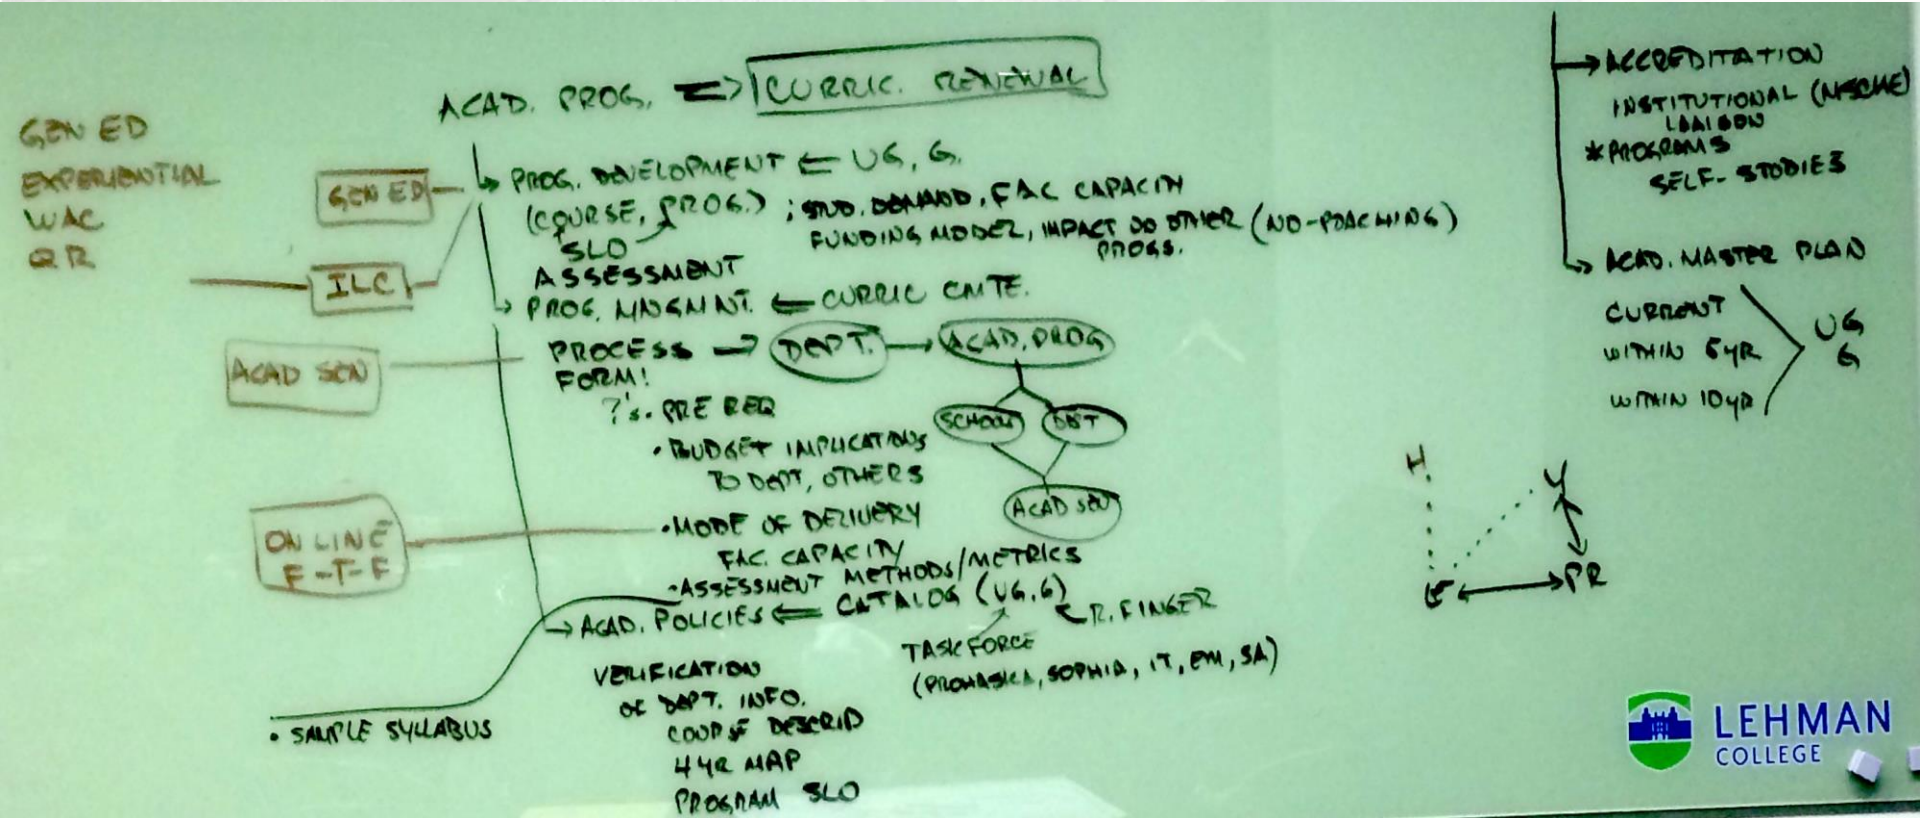 ACAD. PROG. ⇒ CURRIC. RENEWAL
GEN ED
EXPERIENTIAL
WAC
QR
GEN ED
ILC
ACAD SEN
ON LINE
F-T-F
PROG. DEVELOPMENT ⇐ UG, G.
(COURSE, PROG.) ; STUD. DEMAND, FAC CAPACITY
SLO
FUNDING MODEL, IMPACT OO OTHER (NO-POACHING)
PROGS.
ASSESSMENT
PROG. MNGMNT. ⇐ CURRIC CMTE.
PROCESS → DEPT. → ACAD. PROG
FORM!
?'s. PRE REQ
SCHOOL DEPT
• BUDGET IMPLICATIONS
TO DEPT, OTHERS
ACAD SEN
• MODE OF DELIVERY
FAC. CAPACITY
• ASSESSMENT METHODS/METRICS
ACAD. POLICIES ⇐ CATALOG (UG, G)
R. FINGER
TASK FORCE
(PROHASKA, SOPHIA, IT, EM, SA)
VERIFICATION
OF DEPT. INFO.
COURSE DESCRIP
4 YR MAP
PROGRAM SLO
• SAMPLE SYLLABUS
→ ACCREDITATION
INSTITUTIONAL (MSCHE)
LIAISON
* PROGRAMS
SELF-STUDIES
ACAD. MASTER PLAN
CURRENT
WITHIN 5YR
WITHIN 10YR
UG
G
H
Y
E ↔ PR
LEHMAN
COLLEGE